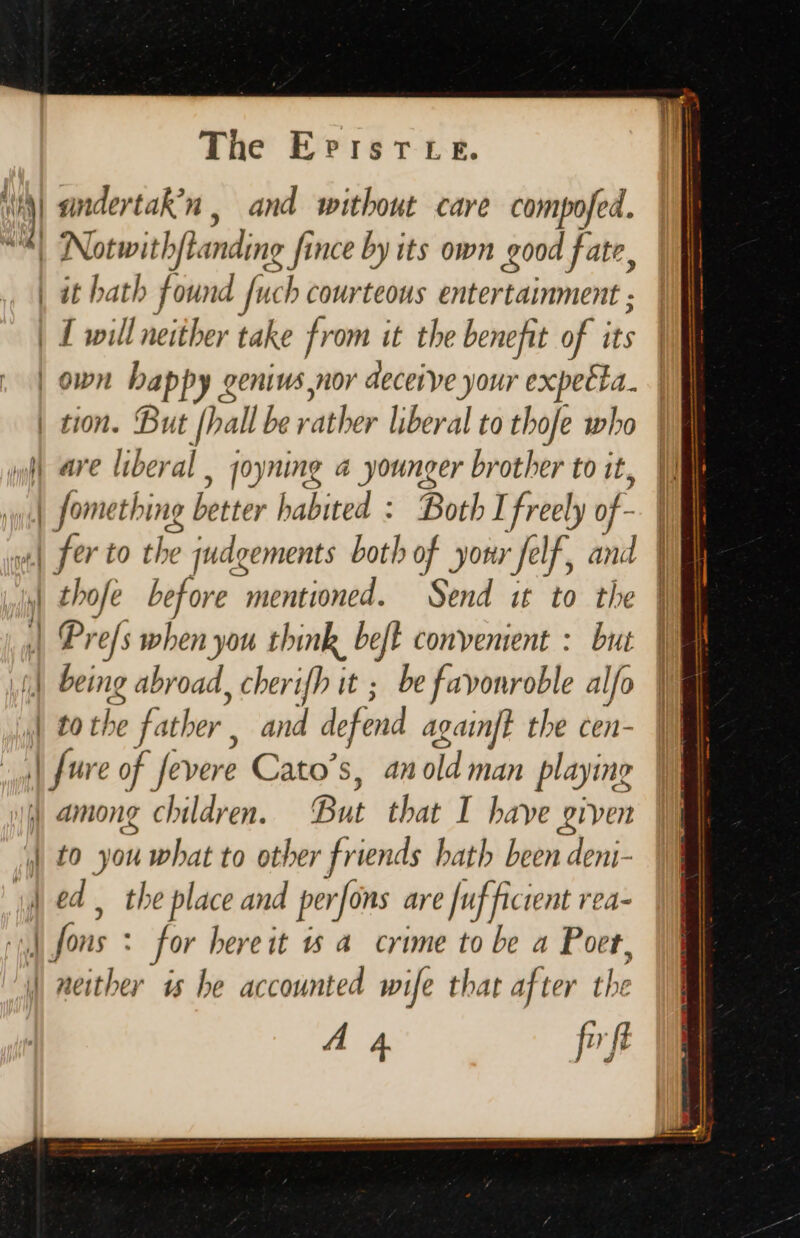 The EPISTLE.
undertak'n, and without care compoſed.
Notwithſtanding ſince by its own good fate,
it hath found ſuch courteous entertainment ;
I will neither take from it the benefit of its
own happy genius, nor deceive your expecta-
tion. But ſhall be rather liberal to thoſe who
are liberal, joyning a younger brother to it,
ſomething better habited : Both I freely of-
fer to the judgements both of your ſelf, and
thoſe before mentioned. Send it to the
Preſs when you think beſt convenient : but
being abroad, cheriſh it ; be favonroble alſo
to the father, and defend againſt the cen-
ſure of ſevere Cato's, an old man playing
among children. But that I have given
to you what to other friends hath been deni-
ed, the place and perſons are ſufficient rea-
ſons : for here it is a crime to be a Poet,
neither is he accounted wiſe that after the
A 4 firſt